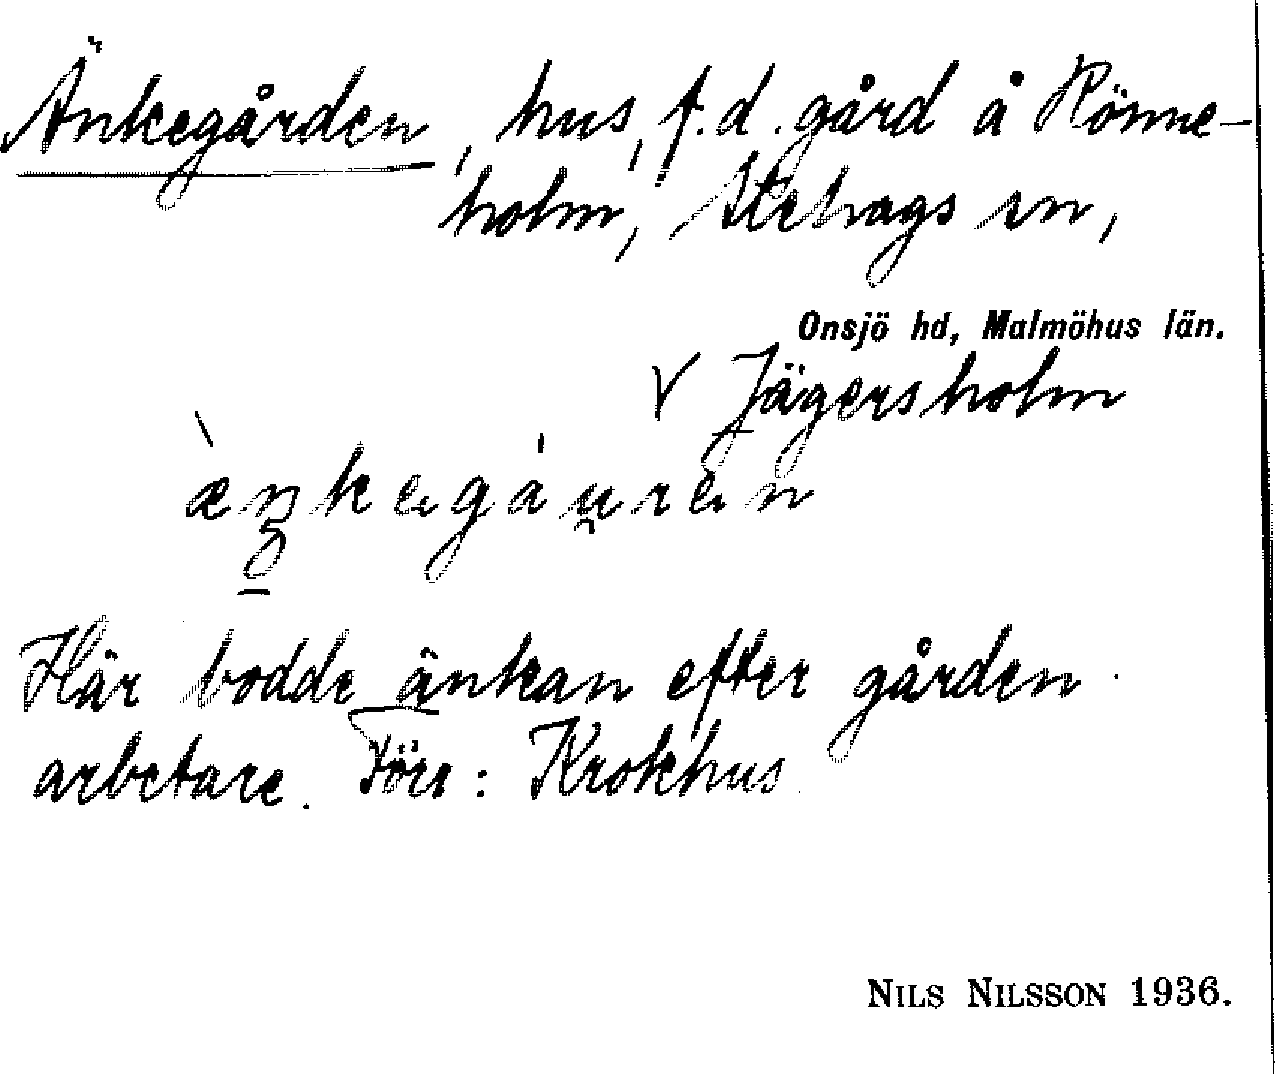 Änkegården, hus, f.d. gård å Rönne-
holm, Stehags sn,
Onsjö hd, Malmöhus län.
V Jägersholm
Här bodde änkan efter gården
arbetare. Förr: Krokhus
NILS NILSSON 1936.